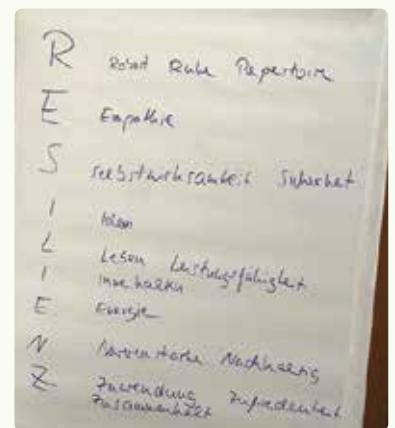 R Robust Ruhe Repertoire
E Empathie
S Selbstwirksamkeit Sicherheit
I Ideen
L Leben Leistungsfähigkeit
I Innehalten
E Energie
N Nervenstärke Nachhaltig
Z Zuwendung Zufriedenheit
Zusammenhalt